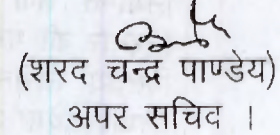 (शरद चन्द्र पाण्डेय)
अपर सचिव ।